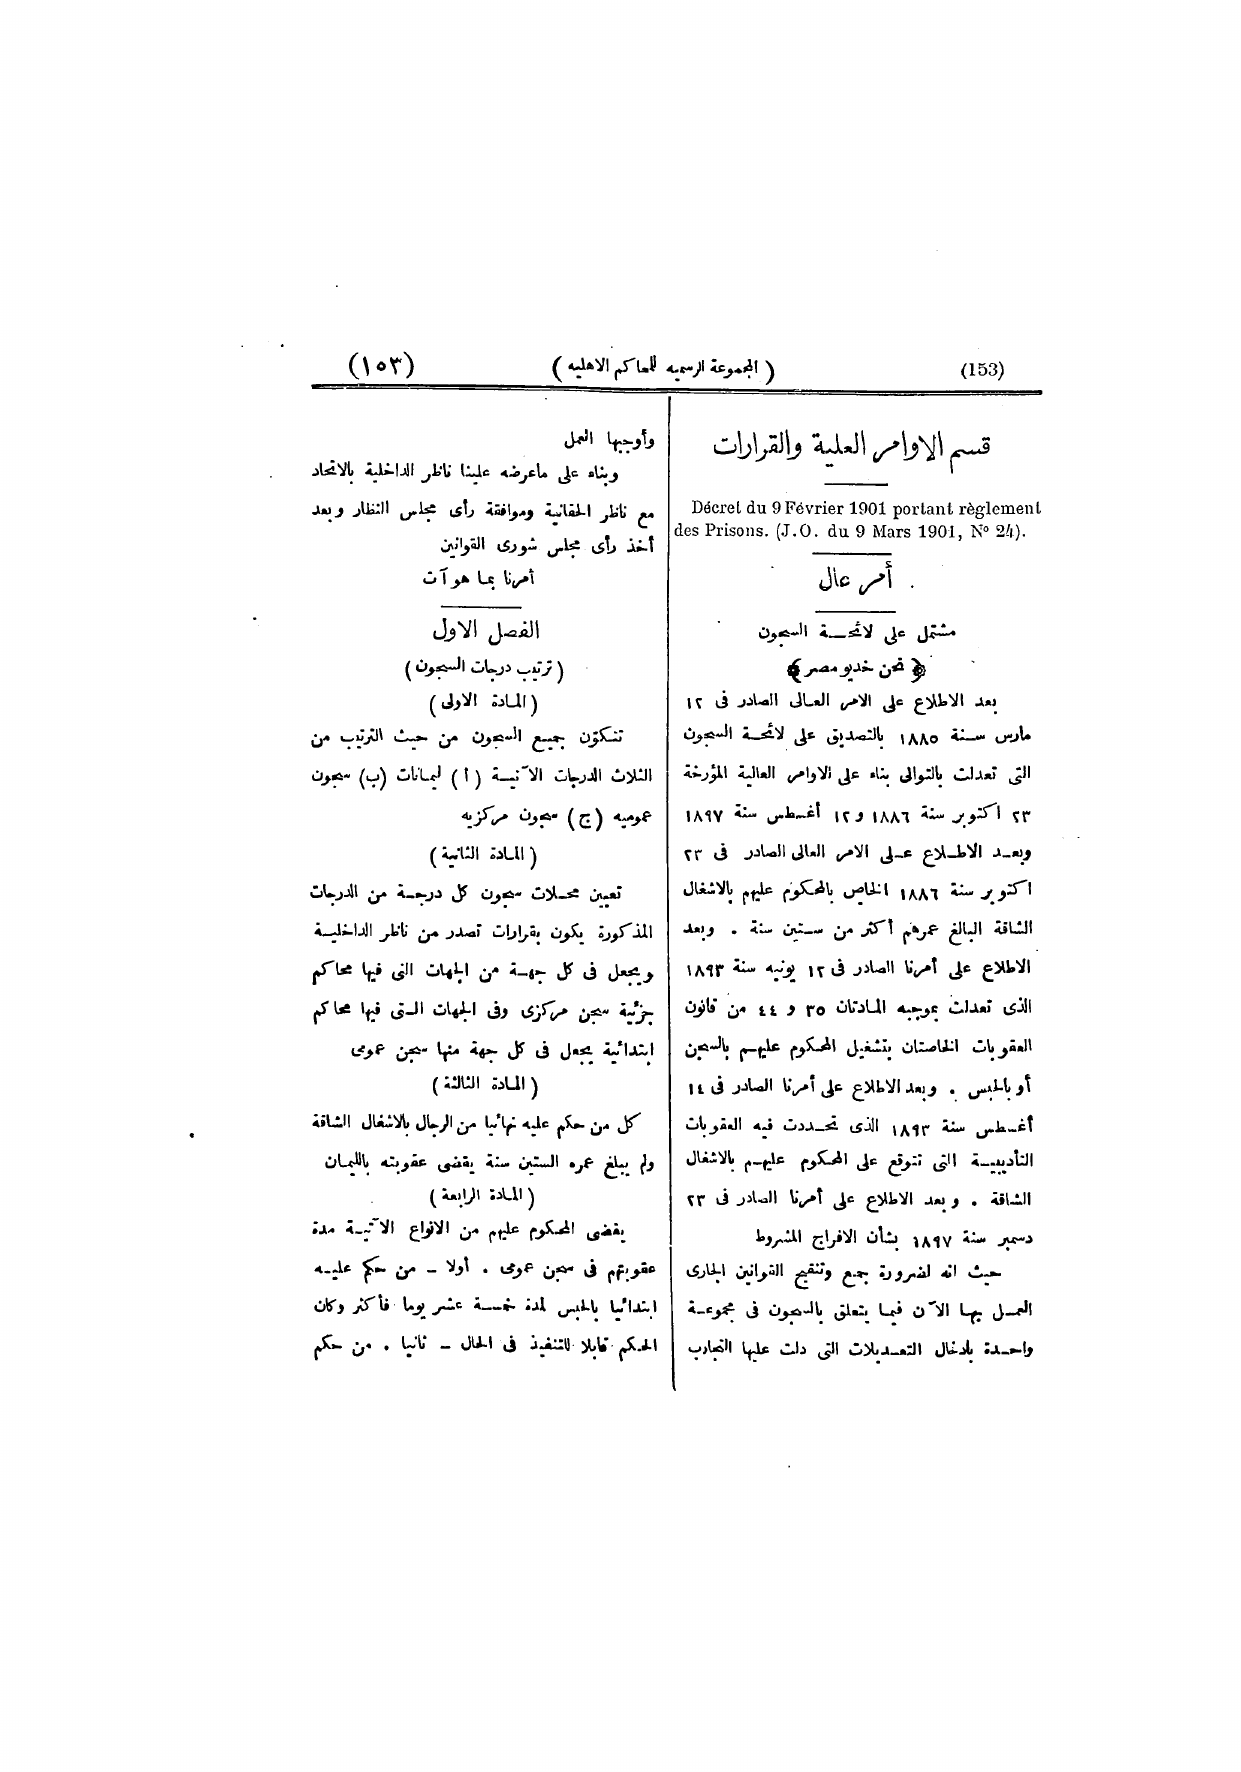 (153) ( المجموعة الرسميه للمحاكم الاهليه ) (١٥٣)
قسم الاوامر العلية والقرارات
Décret du 9 Février 1901 portant règlement
des Prisons. (J.O. du 9 Mars 1901, Nº 24).
أمر عال
مشتمل على لائحة السجون
﴿ نحن خديو مصر ﴾
بعد الاطلاع على الامر العالى الصادر فى ١٢
مارس سنة ١٨٨٥ بالتصديق على لائحة السجون
التى تعدلت بالتوالى بناء على الاوامر العالية المؤرخة
٢٣ اكتوبر سنة ١٨٨٦ و١٢ أغسطس سنة ١٨٩٧
وبعد الاطلاع على الامر العالى الصادر فى ٢٣
اكتوبر سنة ١٨٨٦ الخاص بالمحكوم عليهم بالاشغال
الشاقة البالغ عمرهم أكثر من ستين سنة . وبعد
الاطلاع على أمرنا الصادر فى ١٢ يونيه سنة ١٨٩٣
الذى تعدلت بموجبه المادتان ٣٥ و ٤٤ من قانون
العقوبات الخاصتان بتشغيل المحكوم عليهم بالسجن
أو بالحبس . وبعد الاطلاع على أمرنا الصادر فى ١٤
أغسطس سنة ١٨٩٣ الذى تحددت فيه العقوبات
التأديبية التى تتوقع على المحكوم عليهم بالاشغال
الشاقة . وبعد الاطلاع على أمرنا الصادر فى ٢٣
دسمبر سنة ١٨٩٧ بشأن الافراج المشروط
حيث انه لضرورة جمع وتنقيح القوانين الجارى
العمل بها الآن فيما يتعلق بالسجون فى مجموعة
واحدة بادخال التعديلات التى دلت عليها التجارب
وأوجبها العمل
وبناء على ماعرضه علينا ناظر الداخلية بالاتحاد
مع ناظر الحقانية وموافقة رأى مجلس النظار وبعد
أخذ رأى مجلس شورى القوانين
أمرنا بما هو آت
الفصل الاول
( ترتيب درجات السجون )
( المادة الاولى )
تتكوّن جميع السجون من حيث الترتيب من
الثلاث الدرجات الآتية (أ) ليمانات (ب) سجون
عموميه (ج) سجون مركزيه
( المادة الثانية )
تعيين محلات سجون كل درجة من الدرجات
المذكورة يكون بقرارات تصدر من ناظر الداخلية
ويجعل فى كل جهة من الجهات التى فيها محاكم
جزئية سجن مركزى وفى الجهات التى فيها محاكم
ابتدائية يجعل فى كل جهة منها سجن عمومى
( المادة الثالثة )
كل من حكم عليه نهائيا من الرجال بالاشغال الشاقة
ولم يبلغ عمره الستين سنة يقضى عقوبته بالليمان
( المادة الرابعة )
يقضى المحكوم عليهم من الانواع الآتية مدة
عقوبتهم فى سجن عمومى . أولا – من حكم عليه
ابتدائيا بالحبس لمدة خمسة عشر يوما فأكثر وكان
الحكم قابلا للتنفيذ فى الحال – ثانيا . من حكم